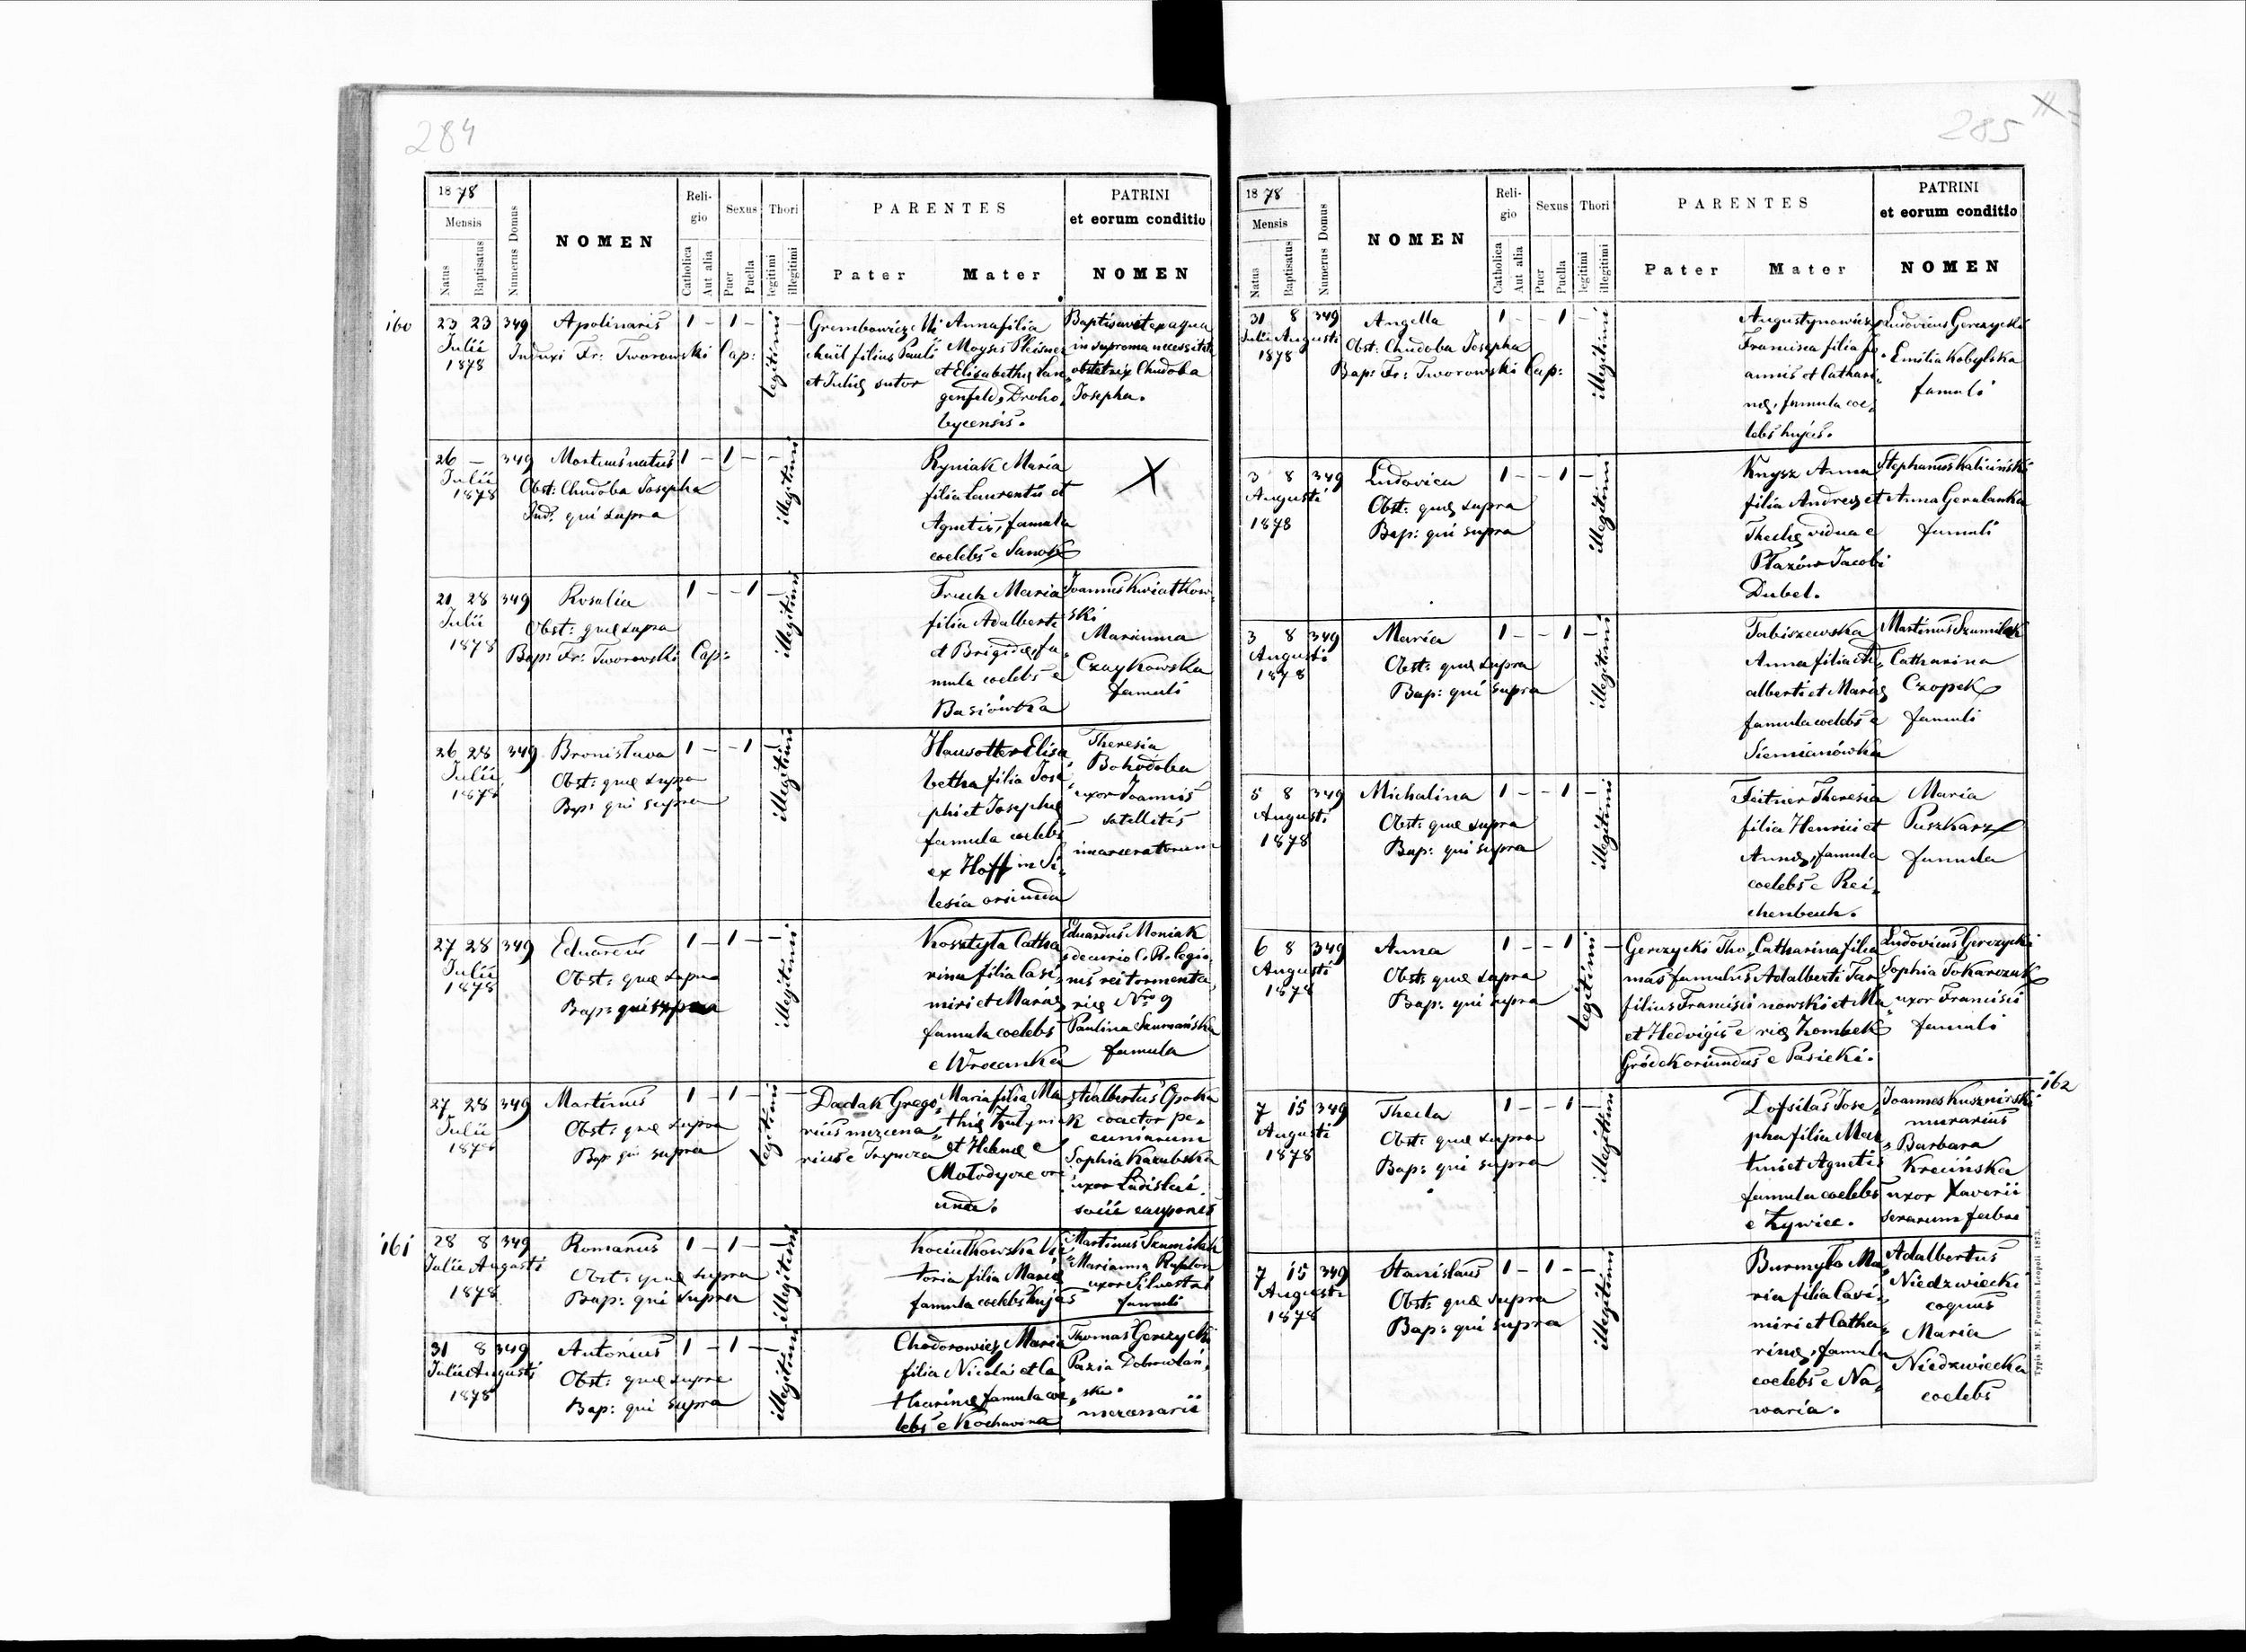 284
1878
Mensis
Natus
Baptisatus
Numerus Domus
NOMEN
Reli-
gio
Catholica
Aut alia
Sexus
Puer
Puella
Thori
legitimi
illegitimi
PARENTES
Pater
Mater
PATRINI
et eorum conditio
NOMEN
160
23 23 349
Julii
1878
Apolinaris
Induxi Fr: Tworowski Cap:
1 – 1 –
legitimi
Grembowicz Mi
chaël filius Pauli
et Julię sutor
Anna filia
Moysis Pleisner
et Elisabethę Lan
genfeld, Droho,
bycensis.
Baptisavit ex aqua
in suprema necessitate
obstetrix Chudoba
Josepha.
26 – 349
Julii
1878
Mortuus natus
Obst: Chudoba Josepha
Ind. qui supra
1 – 1 – –
illegitimi
Ryniak Maria
filia Laurentii et
Agnetis, famula
coelebs e Sanok
X
21 28 349
Julii
1878
Rosalia
Obst: quę supra
Bap: Fr: Tworowski Cap:
1 – – 1 –
illegitimi
Truch Maria
filia Adalberti
et Brigidae, fa,
mula coelebs e
Basiówka
Joannes Kwiatkow,
ski
Marianna
Czaykowska
famuli
26 28 349
Julii
1878
Bronislava
Obst: quę supra
Bap: qui supra
1 – – 1 –
illegitimi
Hausotter Elisa
betha filia Jose
phi et Josephę
famula coelebs
ex Hoff in Si,
lesia oriunda
Theresia
Bohodoba
uxor Joannis
satellitis
incarceratorum
27 28 349
Julii
1878
Eduardus
Obst: quę supra
Bap: qui supra
1 – 1 – –
illegitimi
Kosztyla Catha
rina filia Casi,
miri et Marię
famula coelebs
e Wrocanka
Eduardus Moniak
decurio C. R. legio,
nis rei tormenta,
rię Nro 9
Paulina Szumańska
famula
27 28 349
Julii
1878
Martinus
Obst: quę supra
Bap: qui supra
1 – 1 – –
legitimi
Dadak Grego,
rius mercena,
rius e Trynicza
Maria filia Ma
thię Hulyniak
et Helenę e
Molodycze ori
unda.
Adalbertus Opoka
coactor pe,
cuniarum
Sophia Kazubska
uxor Ladislai
socii cauponis
161
28 8 349
Julii Augusti
1878
Romanus
Obst: quę supra
Bap: qui supra
1 – 1 – –
illegitimi
Kociutkowska Vic
toria filia Marię
famula coelebs hujas
Martinus Szumilak
Marianna
uxor Silvestri
famuli
31 8 349
Julii Augusti
1878
Antonius
Obst: quę supra
Bap: qui supra
1 – 1 – –
illegitimi
Chodorowicz Maria
filia Nicolai et Ca
tharinę famula coe
lebs e Kochawina
Thomas Gerczycki
Pazia Dobrowlań,
ska
mercenarii
285
1878
Mensis
Natus
Baptisatus
Numerus Domus
NOMEN
Reli-
gio
Catholica
Aut alia
Sexus
Puer
Puella
Thori
legitimi
illegitimi
PARENTES
Pater
Mater
PATRINI
et eorum conditio
NOMEN
31 8 349
Julii Augusti
1878
Angella
Obst: Chudoba Josepha
Bap: Fr: Tworowski Cap:
1 – – 1 –
illegitimi
Augustynowicz
Francisca filia Jo,
annis et Cathari,
nę, famula coe,
lebs hujas.
Ludovicus Gerczycki
Emilia Kobylska
famuli
3 8 349
Augusti
1878
Ludovica
Obst: quę supra
Bap: qui supra
1 – – 1 –
illegitimi
Knysz Anna
filia Andreę et
Theclę vidua e
Płazów Jacobi
Dubel.
Stephanus Kaliciński
Anna Geralanka
famuli
3 8 349
Augusti
1878
Maria
Obst: quę supra
Bap: qui supra
1 – – 1 –
illegitimi
Tabiszewska
Anna filia Ad,
alberti et Marię
famula coelebs e
Siemianówka
Martinus Szumilak
Catharina
Czopek
famuli
5 8 349
Augusti
1878
Michalina
Obst: quę supra
Bap: qui supra
1 – – 1 –
illegitimi
Feitner Theresia
filia Henrici et
Annę, famula
coelebs e Rei,
chenbach.
Maria
Puszkarz
famula
6 8 349
Augusti
1878
Anna
Obst: quę supra
Bap: qui supra
1 – – 1 –
legitimi
Gerczycki Tho,
mas famulus
filius Francisci
et Hedvigis e
Gródek oriundus
Catharina filia
Adalberti Tar
nowski et Ma
rię Zombek
e Pasieki.
Ludovicus Gerczycki
Sophia Tokarczuk
uxor Francisci
famuli
162
7 15 349
Augusti
1878
Thecla
Obst: quę supra
Bap: qui supra
1 – – 1 –
illegitimi
Dofsilas Jose,
pha filia Mar,
tini et Agnetis
famula coelebs
e Żywiec.
Joannes Kusznirski
murarius
Barbara
Krecińska
uxor Xaverii
serarum fabri
7 15 349
Augusti
1878
Stanislaus
Obst: quę supra
Bap: qui supra
1 – 1 – –
illegitimi
Burmyło Ma,
ria filia Casi,
miri et Catha,
rinę, famula
coelebs e Na,
waria.
Adalbertus
Niedzwiecki
coquus
Maria
Niedzwiecka
coelebs
Typis M. F. Poremba Leopoli 1873.